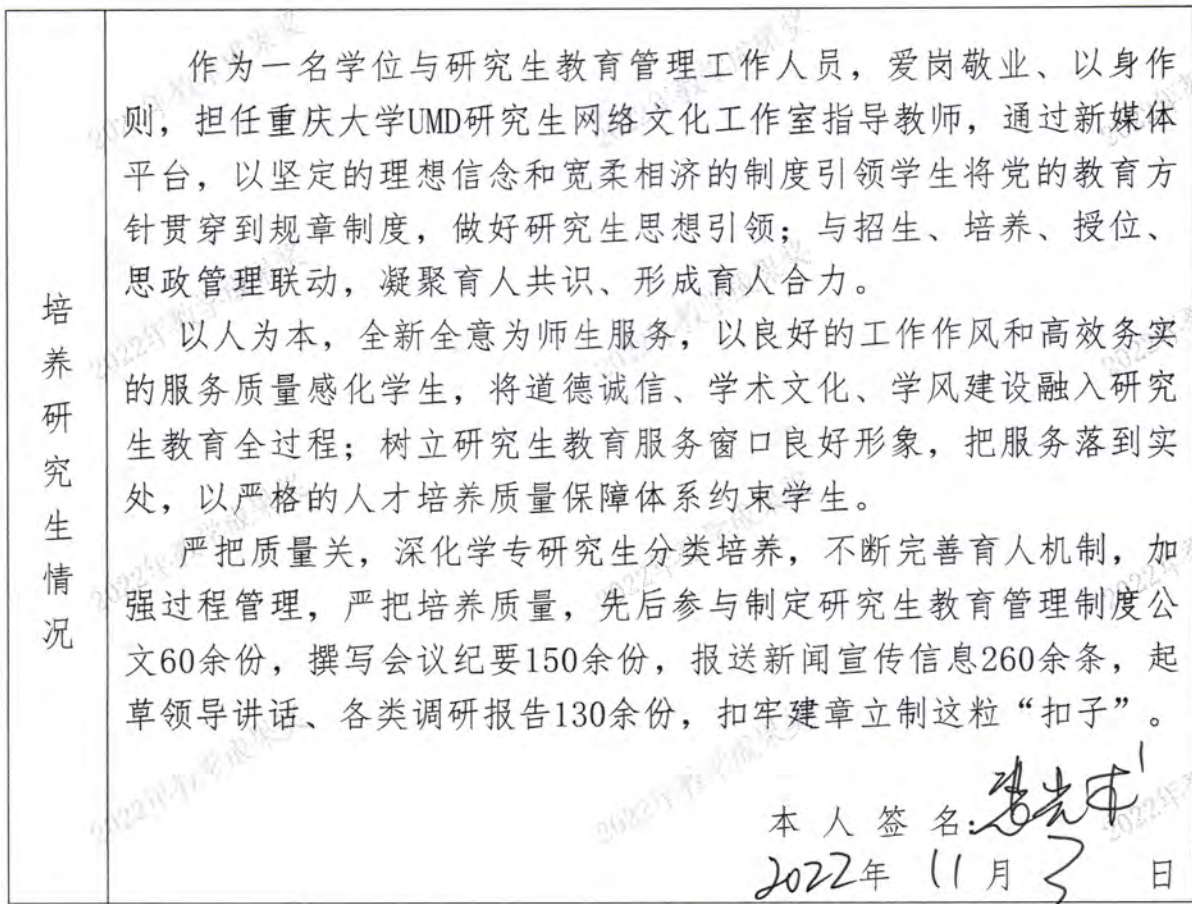 培养研究生情况
作为一名学位与研究生教育管理工作人员，爱岗敬业、以身作
则，担任重庆大学UMD研究生网络文化工作室指导教师，通过新媒体
平台，以坚定的理想信念和宽柔相济的制度引领学生将党的教育方
针贯穿到规章制度，做好研究生思想引领；与招生、培养、授位、
思政管理联动，凝聚育人共识、形成育人合力。
以人为本，全新全意为师生服务，以良好的工作作风和高效务实
的服务质量感化学生，将道德诚信、学术文化、学风建设融入研究
生教育全过程；树立研究生教育服务窗口良好形象，把服务落到实
处，以严格的人才培养质量保障体系约束学生。
严把质量关，深化学专研究生分类培养，不断完善育人机制，加
强过程管理，严把培养质量，先后参与制定研究生教育管理制度公
文60余份，撰写会议纪要150余份，报送新闻宣传信息260余条，起
草领导讲话、各类调研报告130余份，扣牢建章立制这粒“扣子”。
本人签名：
2022年 11月 3 日